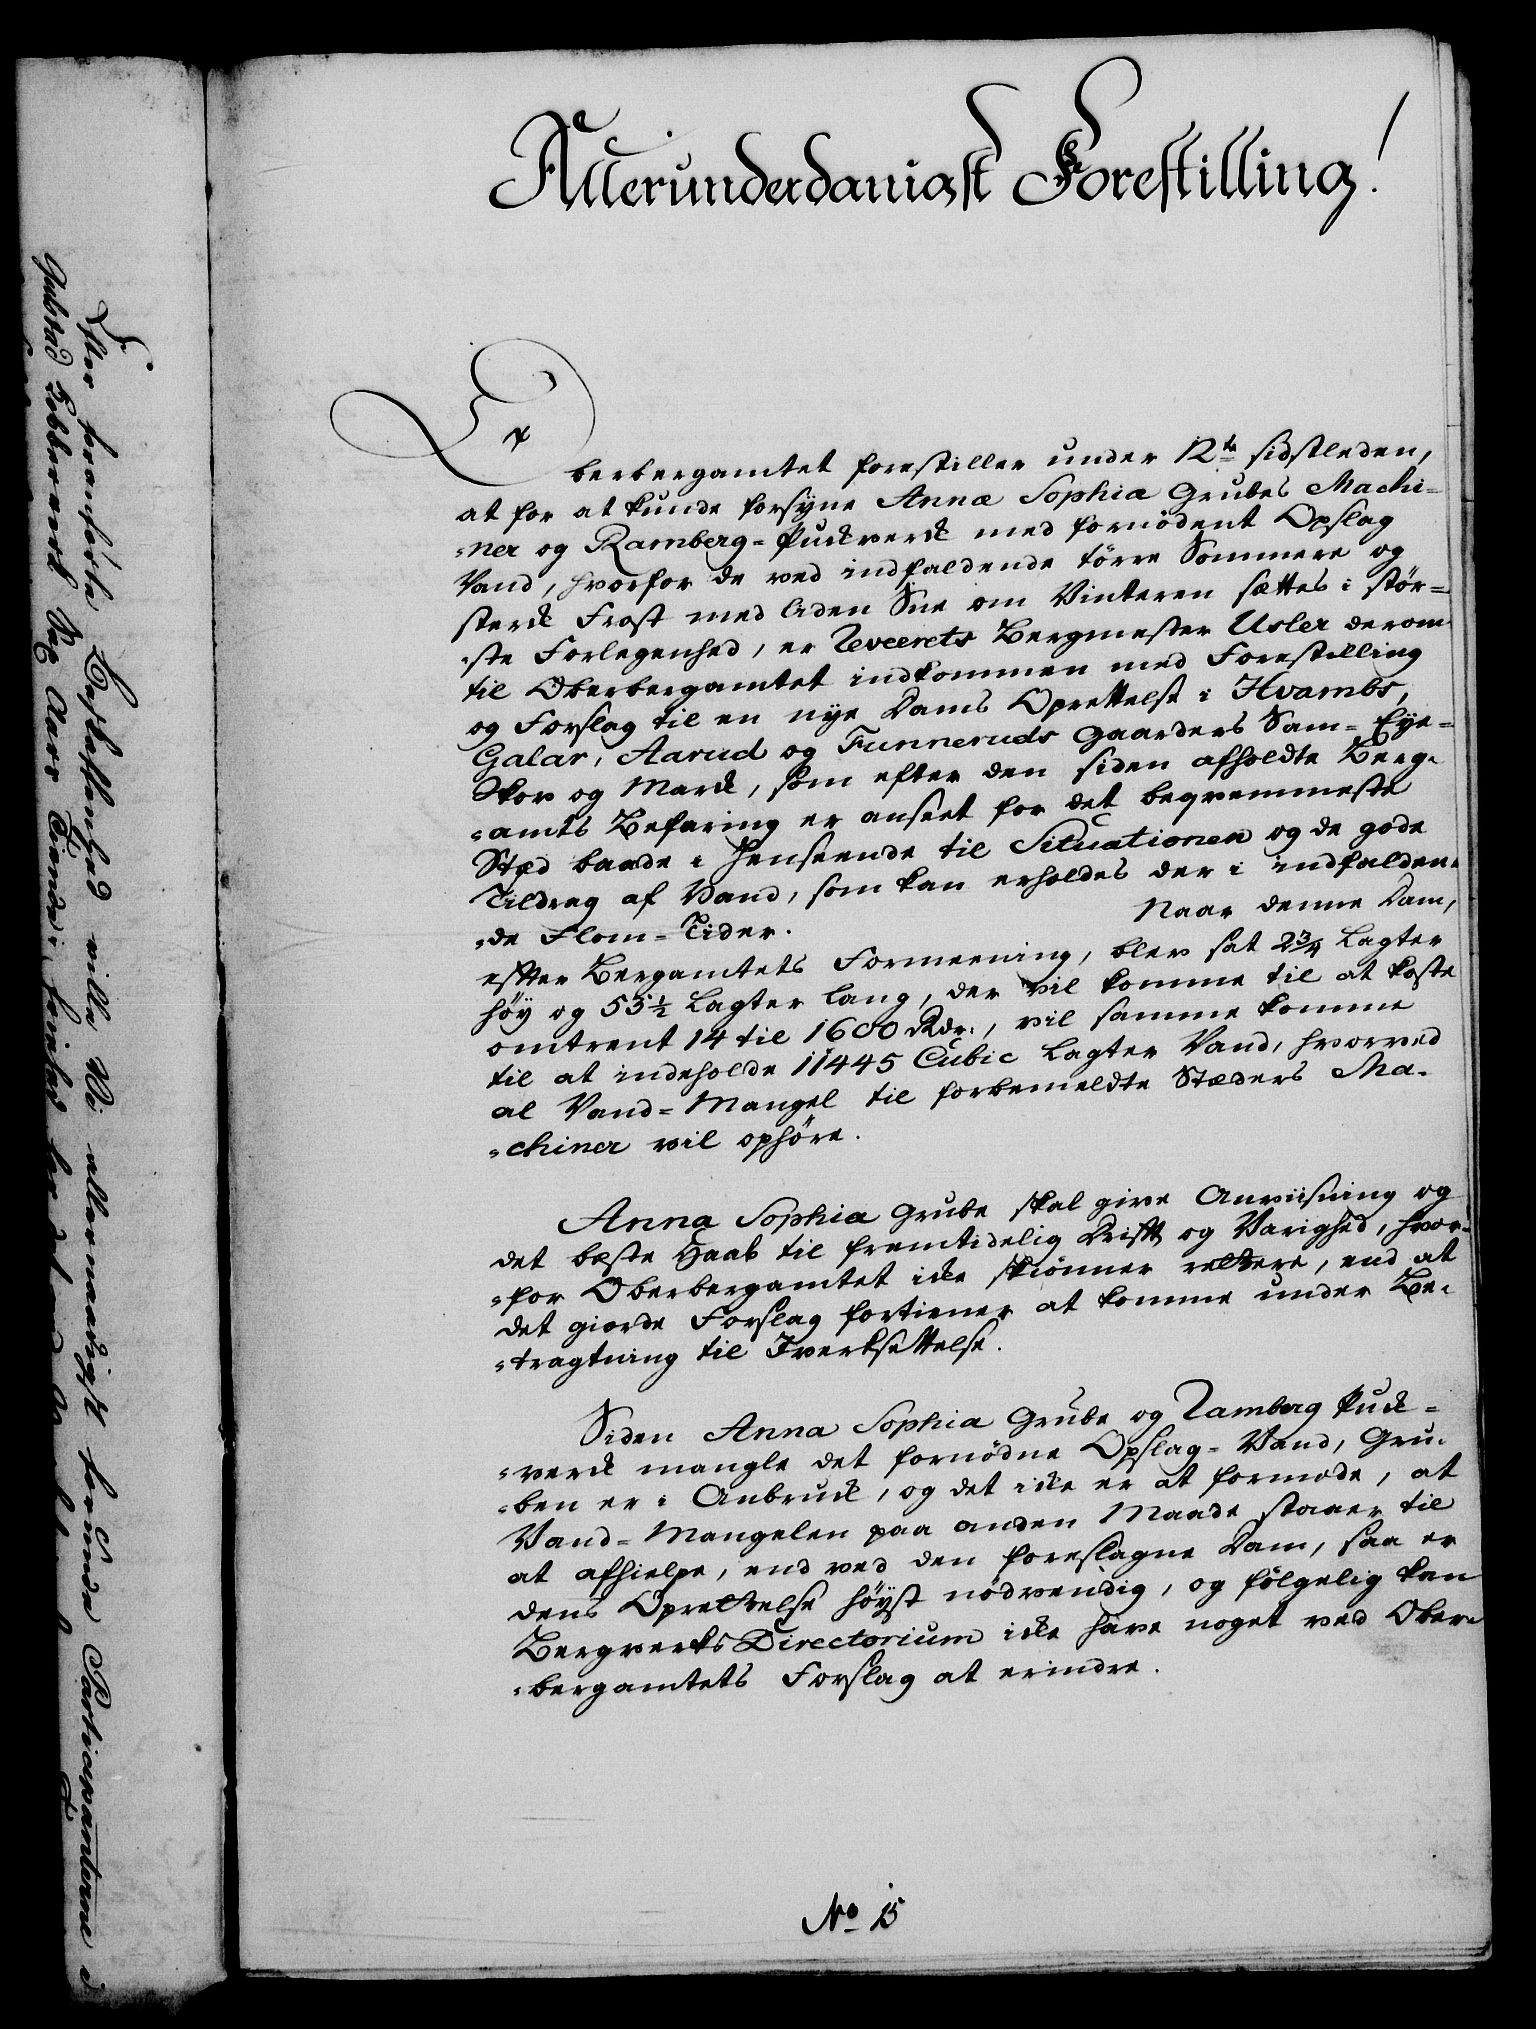 Allerunderdanigst Forestilling!
Oberbergamtet forestiller under 12te sidstleden,
at for at kunde forsyne Annæ Sophiæ Grubes Machi=
=ner og Ramberg=Puckverck med fornödent Opslag
Vand, hvorfor de ved indfaldende törre Sommere og
sterck Frost med liden Sne om Vinteren sættes i stör=
=ste Forlegenhed, er Reveerets Bergmester Usler derom
til Oberbergamtet indkommen med Forestilling
og Forslag til en nye Dams Oprettelse i Hvambs,
Galar, Aarud og Funneruds Gaarders Sam=Eye=
Skov og Marck, som efter den siden afholdte Berg=
=amts Befaring er anseet for det beqvemmeste
Sted baade i Henseende til Situationen og de gode
Tildrag af Vand, som kan erholdes der i indfalden=
=de Flom=Tider.
Naar denne Dam,
efter Bergamtets Formeening, blev sat 2 3/4 Lagter
höy og 53 1/2 Lagter lang, der vil komme til at koste
omtrent 14 til 1600 Rdr., vil samme komme
til at indeholde 11445 Cubic Lagter Vand, hvorved
al Vand=Mangel til forbemeldte Stæders Ma=
=chiner vil ophöre.
Anna Sophia Grube skal give Anviisning og
det beste Haab til fremtidelig Drift og Varighed, hvor=
=for Oberbergamtet icke skiönner rettere, end at
det giorde Forslag fortiener at komme under Be=
=tragtning til Iverksettelse.
Siden Anna Sophia Grube og Ramberg Puck=
=verck mangle det fornödne Opslag=Vand, Gru=
=ben er i Anbruck, og det icke er at formode, at
Vand=Mangelen paa anden Maade staaer til
at afhielpe, end ved den foreslagne Dam, saa er
dens Oprettelse höyst nödvendig, og fölgelig kan
Bergverks Directorium icke have noget ved Ober=
=bergamtets Forslag at erindre.
No 15
Efter franförte Beskaffenhed ville Vi allernaadigst forunde Participanterne i